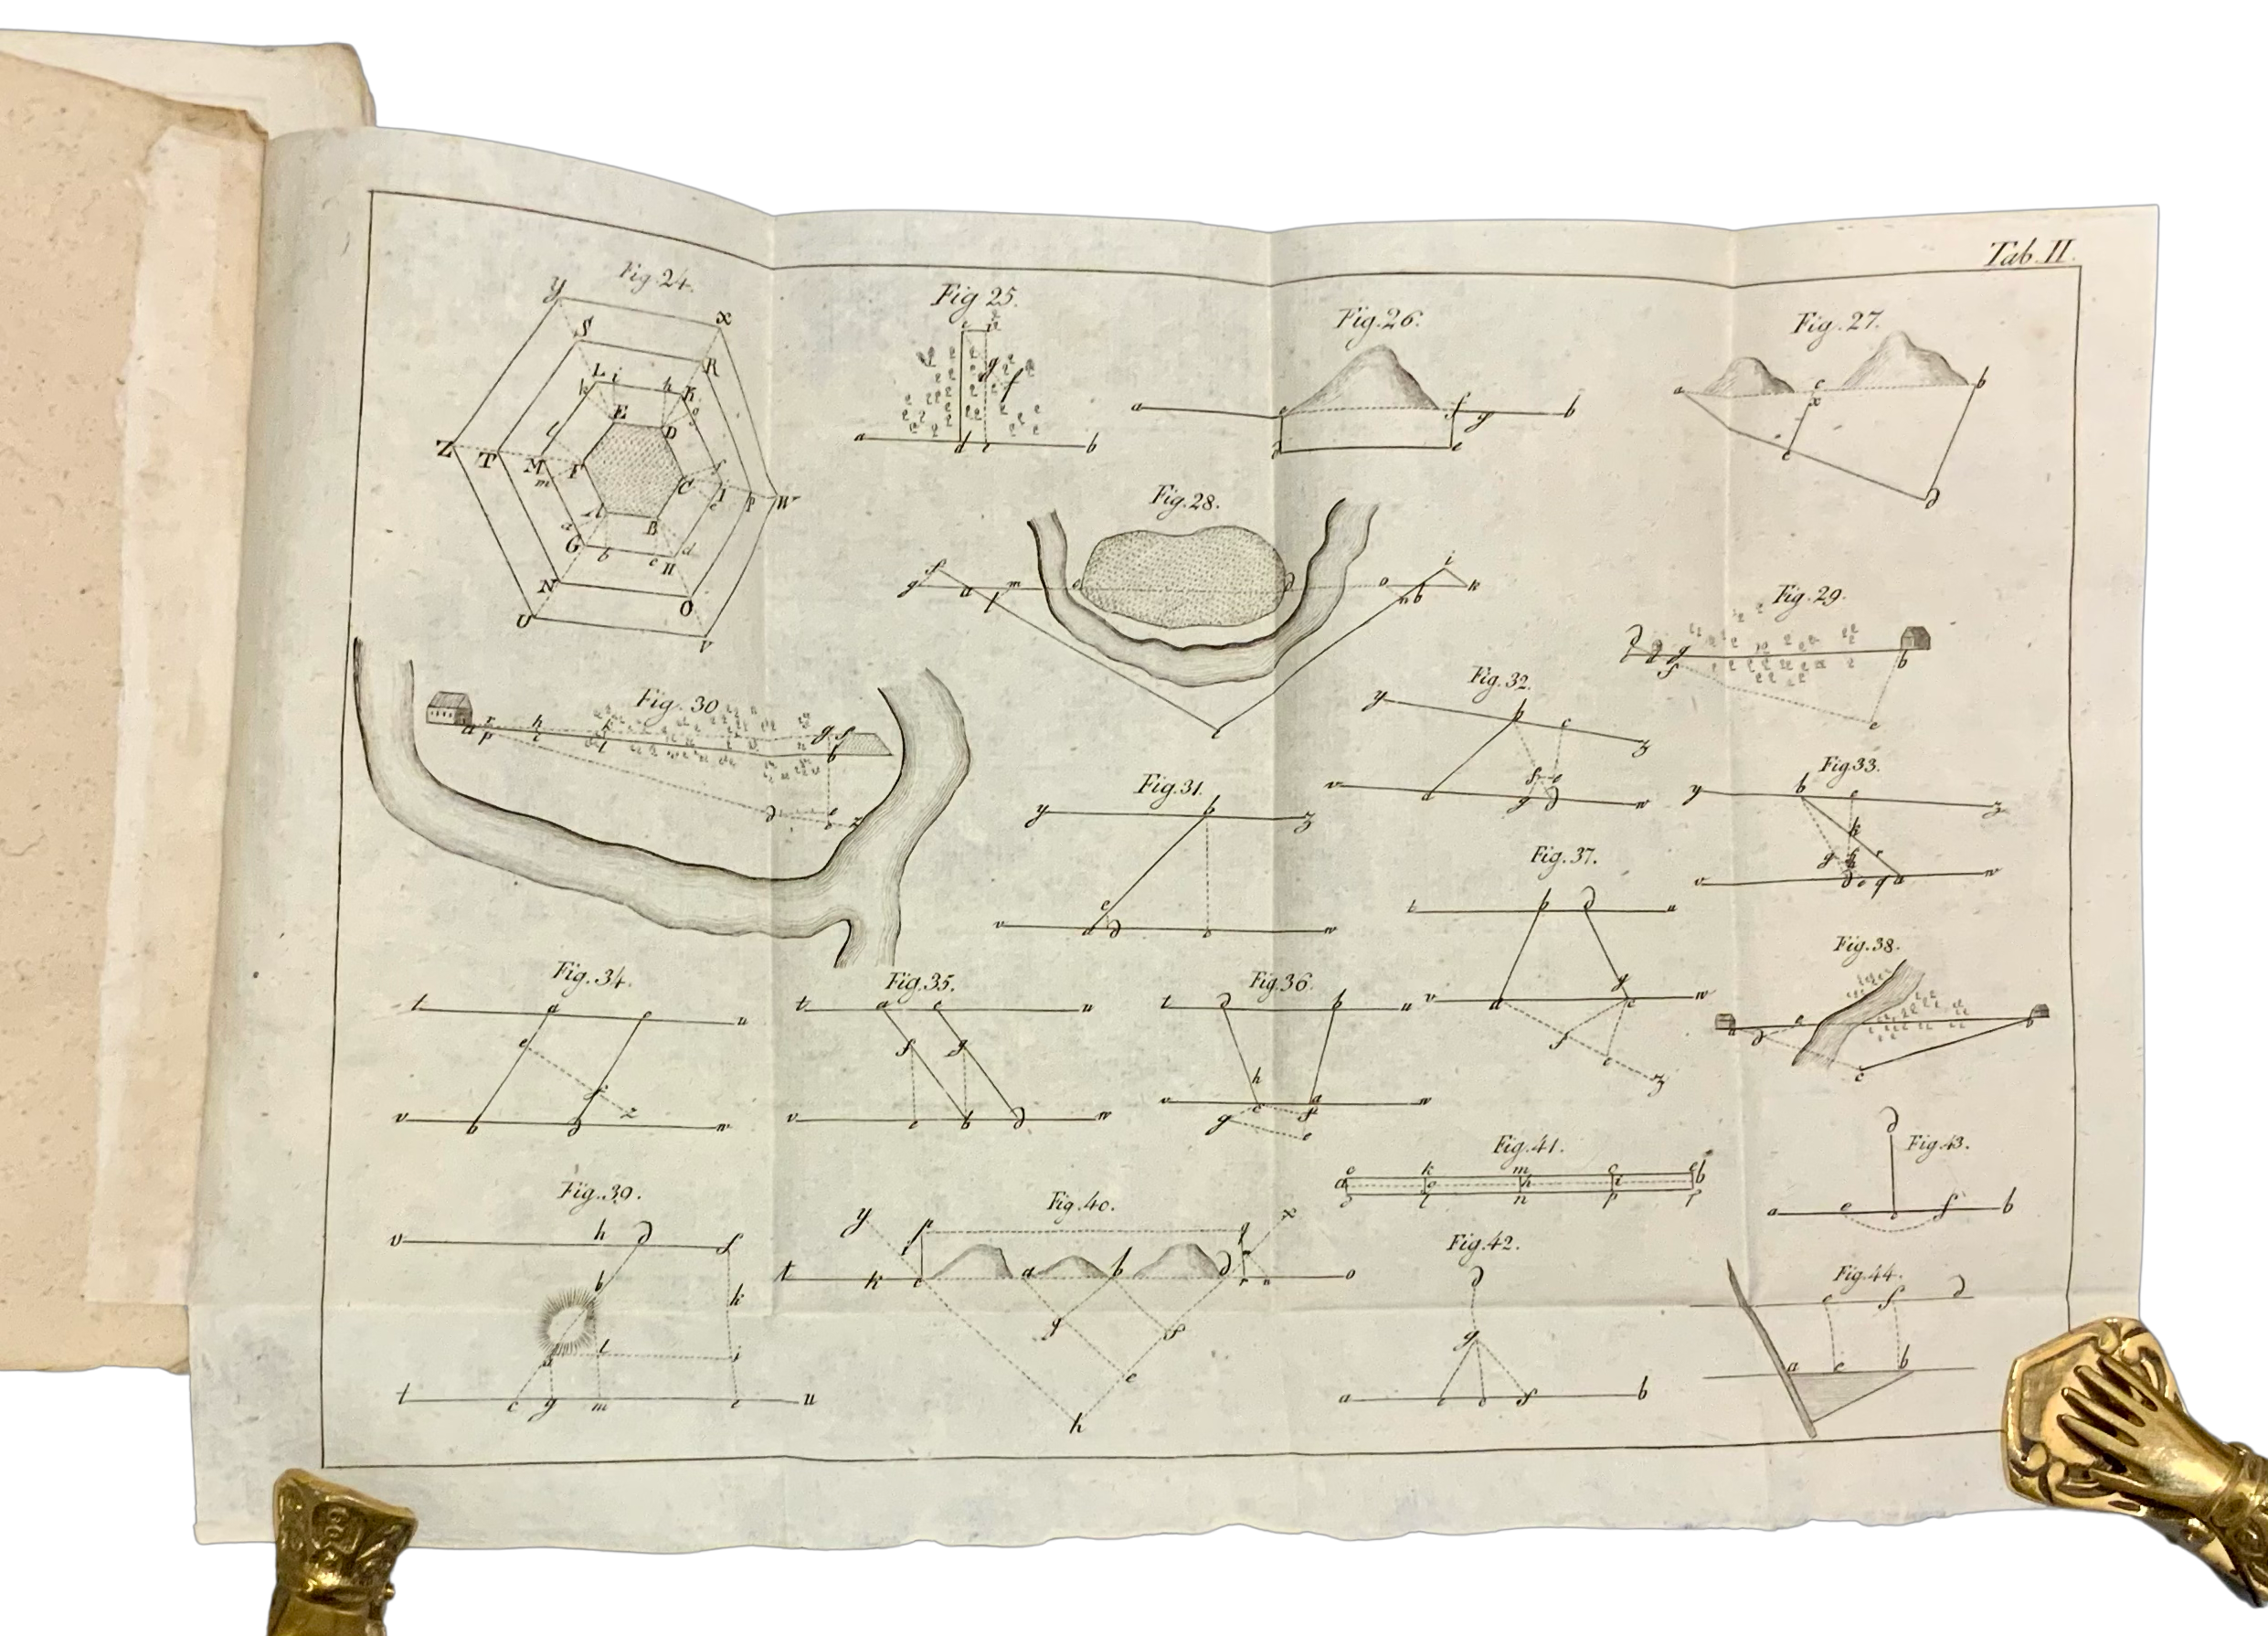 Tab. II.
Fig. 24.
Fig 25.
Fig. 26.
Fig. 27.
y
x
S
R
L i
h K
k
g
E
D
l
Z
T
M
m
F
f
C
I
e
P
W
A
B
a
G
b
c
H
d
N
O
U
V
g
f
a
d
b
a
f g
b
e
a
c
x
b
e
d
Fig. 28.
f
g
a
l
m
d
o
b
i
k
c
Fig. 29.
d
g
f
b
c
Fig. 30
r
h
p
i
k
l
g f
b
d
e
z
Fig. 31.
y
b
z
e
v
a d
c
w
Fig. 32.
y
b
c
z
v
a
g d
w
Fig. 33.
y
b
c
z
k
g
h
r
v
d e q a
w
Fig. 34.
t
a
c
u
e
f
z
v
b
d
w
Fig. 35.
t
a
c
u
f
g
v
e
b
d
w
Fig. 36.
t
d
b
u
h
v
c
a
w
g
f
e
Fig. 37.
t
b
d
u
g
v
a
c
w
f
e
z
Fig. 38.
a
d
e
b
c
Fig. 39.
v
h
d
f
b
k
a
l
i
t
c
g
m
e
u
Fig. 40.
y
p
q
x
t
k
c
a
b
d
r
n
o
g
f
e
h
Fig. 41.
k
m
b
a
g
h
i
l
n
p
r
Fig. 42.
d
g
a
f
b
Fig. 43.
d
a
e
c
f
b
Fig. 44.
e
f
d
a
c
b